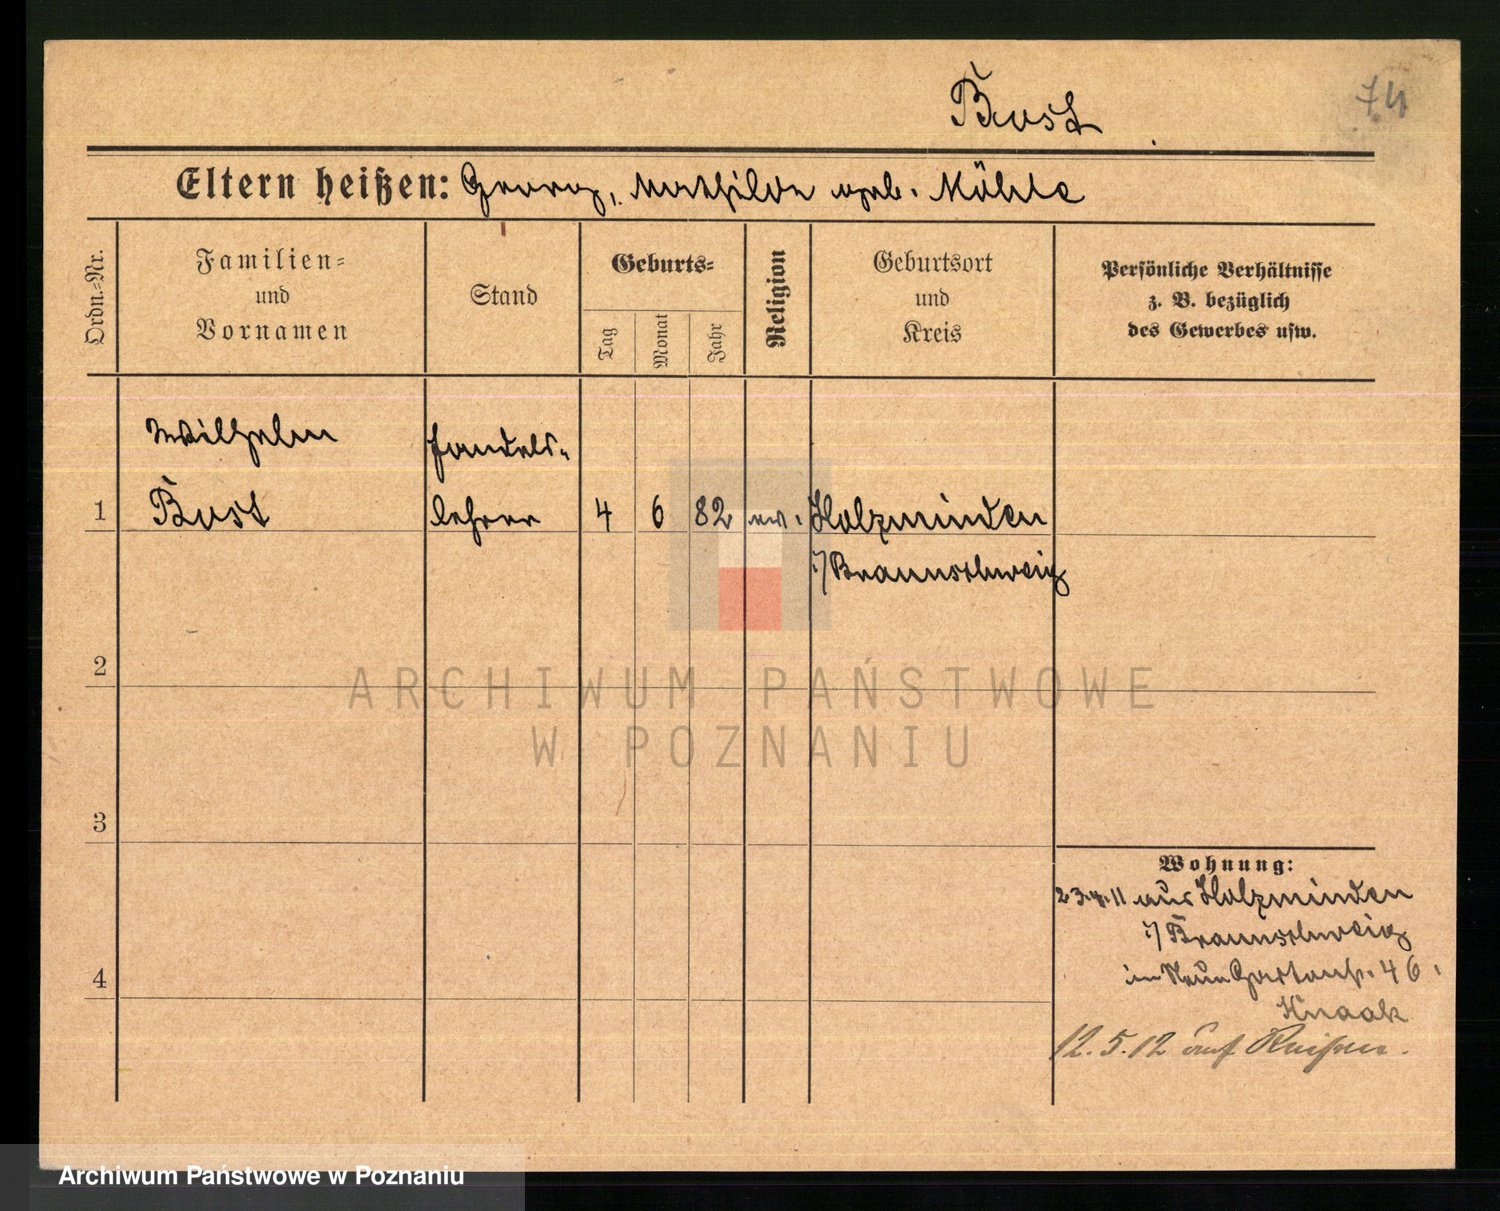 Bust
74
Eltern heißen: Georg, Mathilde geb. Möhle
Ordn.-Nr.
Familien- und Vornamen
Stand
Geburts-
Tag
Monat
Jahr
Religion
Geburtsort und Kreis
Persönliche Verhältnisse z. B. bezüglich des Gewerbes usw.
Wilhelm Handels-
1 Bust lehrer 4 6 82 ev. Holzminden
i/ Braunschweig
2
ARCHIWUM PAŃSTWOWE
W POZNANIU
3
Wohnung:
23.4.11 aus Holzminden
i/ Braunschweig
4
in Neue Gartenstr. 46.
Knaak
12.5.12 auf Reisen.
Archiwum Państwowe w Poznaniu